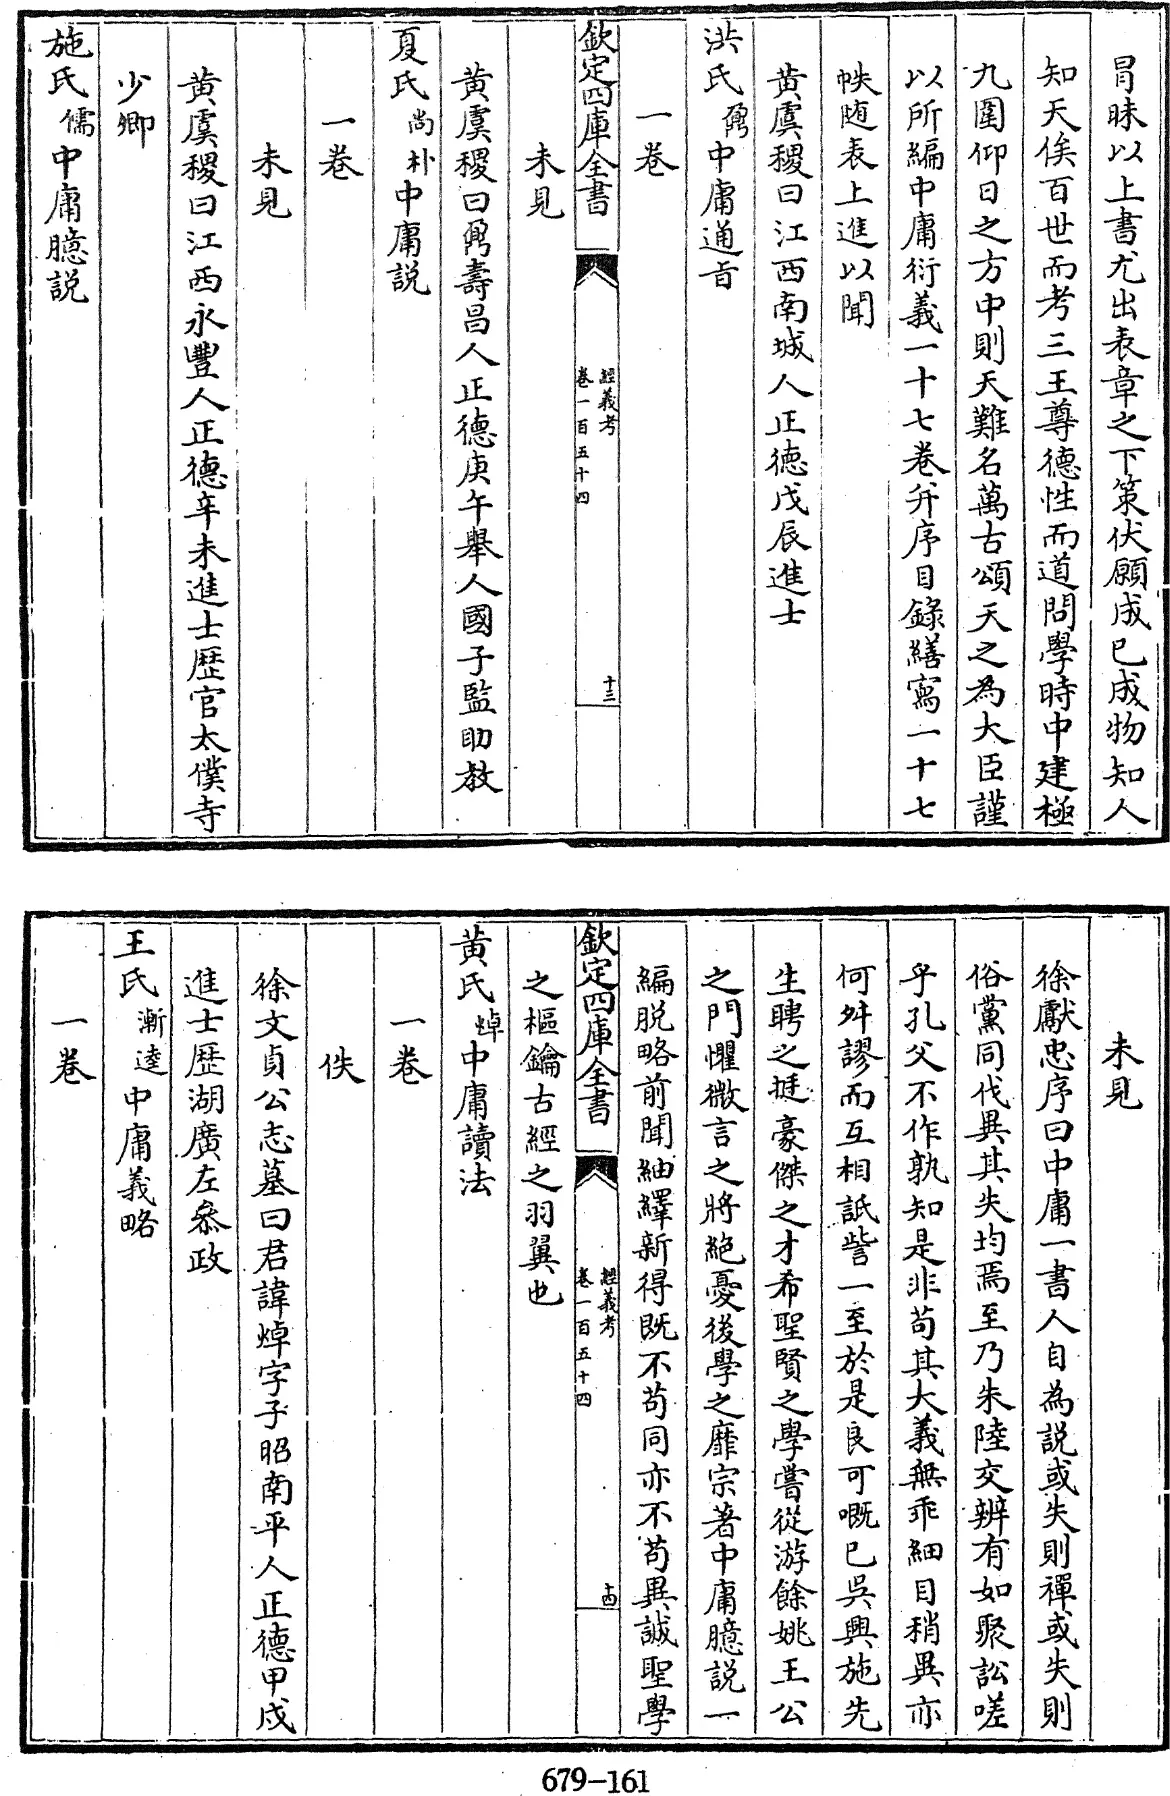 冐昧以上書尤出表章之下策伏願成已成物知人
知天俟百世而考三王尊德性而道問學時中建極
九圍仰日之方中則天難名萬古頌天之為大臣謹
以所編中庸衍義一十七卷并序目錄繕寫一十七
帙随表上進以聞
黄虞稷曰江西南城人正德戊辰進士
洪氏鼐中庸通旨
一卷
欽定四庫全書
經義考
卷一百五十四
十三
未見
黄虞稷曰鼐壽昌人正德庚午舉人國子監助教
夏氏尚朴中庸説
一卷
未見
黄虞稷曰江西永豐人正德辛未進士歴官太僕寺
少卿
施氏儒中庸臆説
未見
徐獻忠序曰中庸一書人自為説或失則禪或失則
俗黨同伐異其失均焉至乃朱陸交辨有如聚訟嗟
乎孔父不作孰知是非苟其大義無乖細目稍異亦
何舛謬而互相詆訾一至於是良可嘅已吳興施先
生聘之挺豪傑之才希聖賢之學嘗從游餘姚王公
之門懼微言之將絶憂後學之靡宗著中庸臆説一
編脱略前聞紬繹新得既不苟同亦不苟異誠聖學
欽定四庫全書
經義考
卷一百五十四
十四
之樞鑰古經之羽翼也
黄氏焯中庸讀法
一卷
佚
徐文貞公志墓曰君諱焯字子昭南平人正德甲戌
進士歴湖廣左叅政
王氏漸逵中庸義略
一卷
679-161